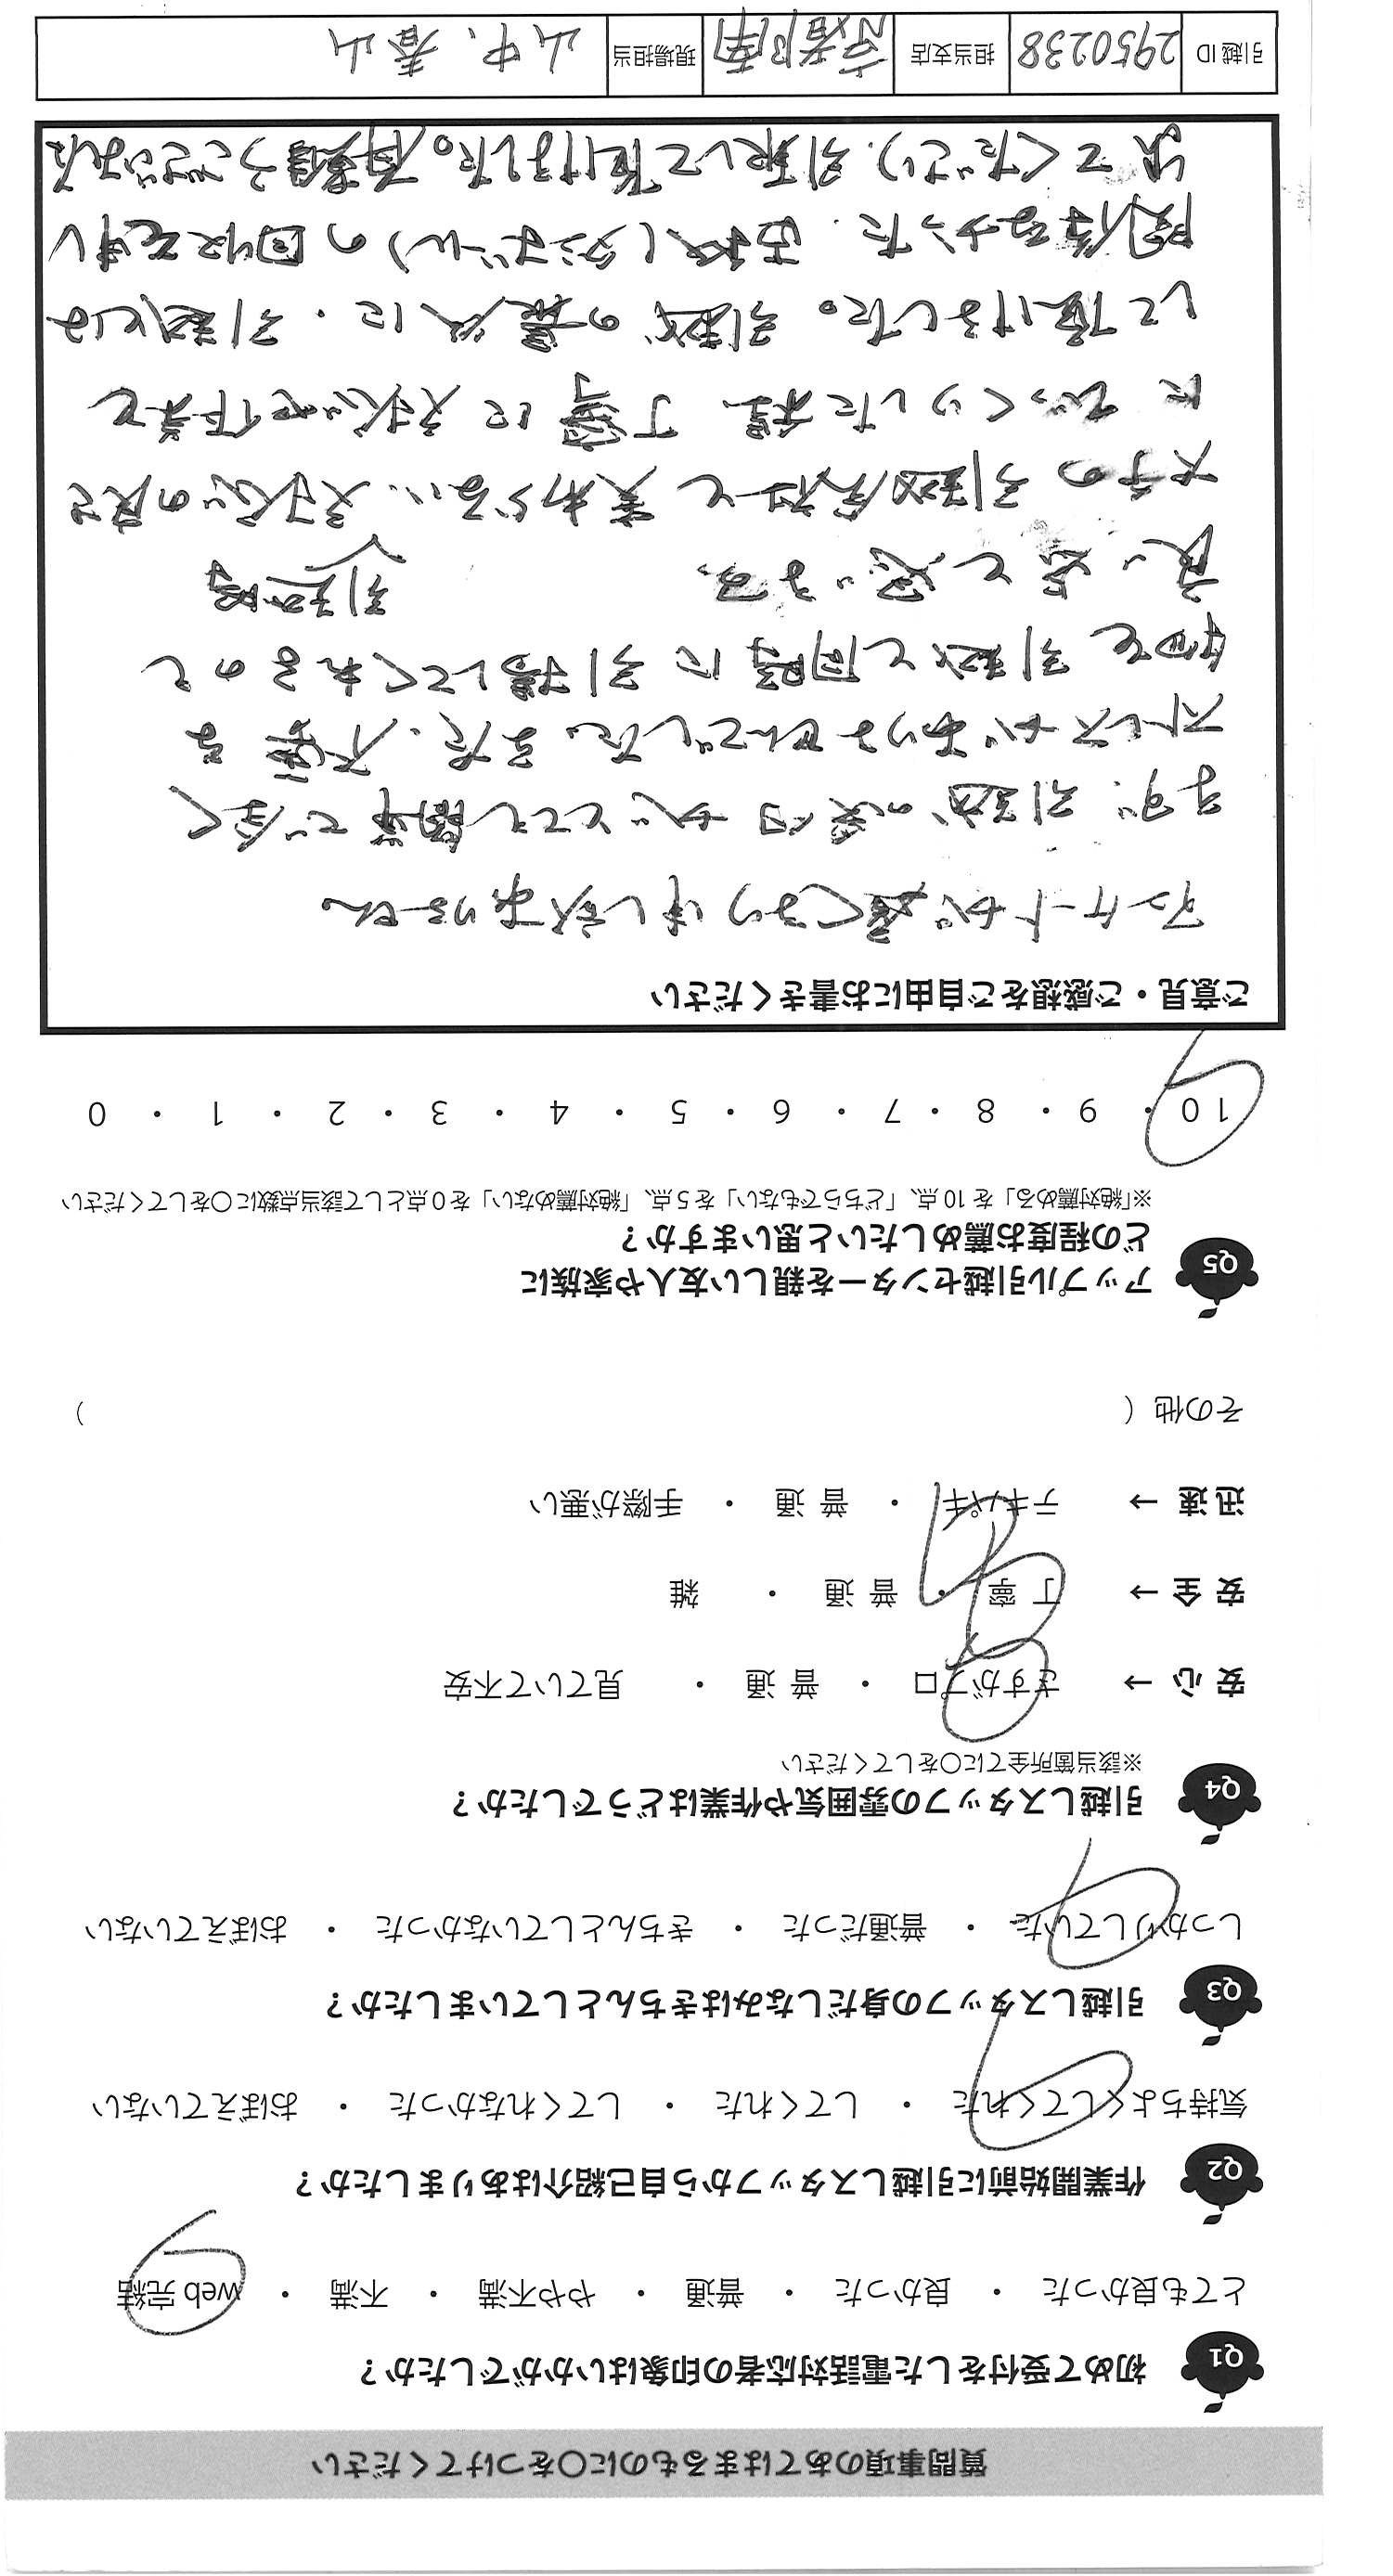 質問事項のあてはまるものに〇をつけてください
Q1 初めて受付をした電話対応者の印象はいかがでしたか？
とても良かった ・ 良かった ・ 普通 ・ やや不満 ・ 不満 ・ web 完結
Q2 作業開始前に引越しスタッフから自己紹介はありましたか？
気持ちよくしてくれた ・ してくれた ・ してくれなかった ・ おぼえていない
Q3 引越しスタッフの身だしなみはきちんとしていましたか？
しっかりしていた ・ 普通だった ・ きちんとしていなかった ・ おぼえていない
Q4 引越しスタッフの雰囲気や作業はどうでしたか？
※該当箇所全てに〇をしてください
安心 → さすがプロ ・ 普通 ・ 見ていて不安
安全 → 丁寧 ・ 普通 ・ 雑
迅速 → テキパキ ・ 普通 ・ 手際が悪い
その他（ ）
Q5 アップル引越センターを親しい友人や家族に
どの程度お薦めしたいと思いますか？
※「絶対薦める」を 10 点、「どちらでもない」を 5 点、「絶対薦めない」を 0 点として該当点数に〇をしてください
10 ・ 9 ・ 8 ・ 7 ・ 6 ・ 5 ・ 4 ・ 3 ・ 2 ・ 1 ・ 0
ご意見・ご感想をご自由にお書きください
アンケートが遅くなり申し訳ありません
まず、引越の受付がとても簡単で全く
ストレスがありませんでした。また、不要な
物を引越と同時に引揚してくれるのも
良い点と思います。 引越時
大手の引越会社と変わらない、対応の良さ
にびっくりした程 丁寧に対応や作業を
して頂けました。引越の最後に、引越とは
関係なかった、古紙(ダンボール)の回収を申し
出てくださり、引取して頂けました。有難うございました
引越 ID 2950238 担当支店 京都南 現場担当 山中、春山